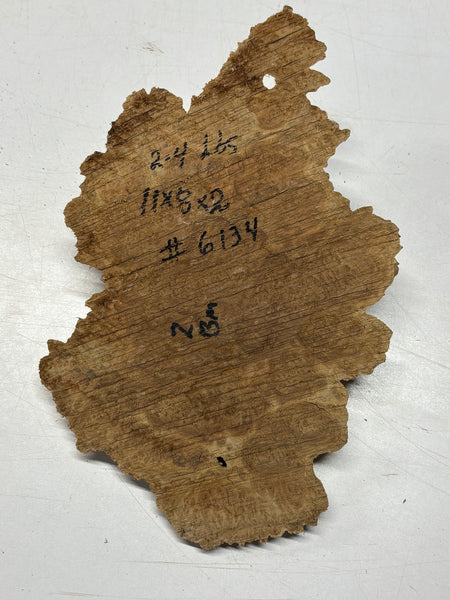 2-4 Lbs
11x8x2
# 6134
2
BM